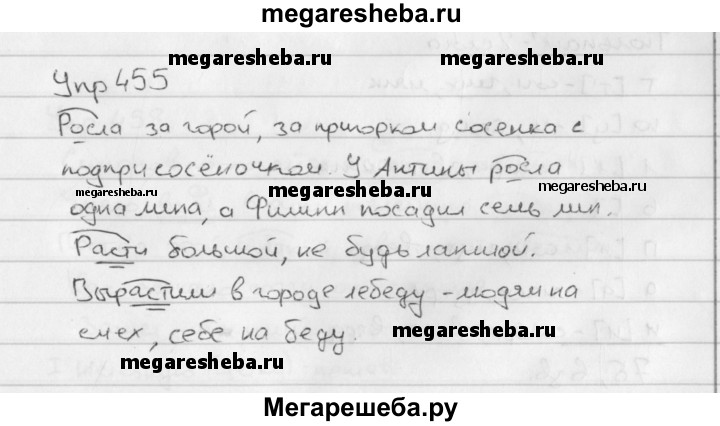 megaresheba.ru
megaresheba.ru
megaresheba.ru
Упр 455
megaresheba.ru
Росла за горой, за пригорком сосенка с
подпри сосёночком. У Антипы росла
megaresheba.ru
megaresheba.ru
megaresheba.ru
одна липа, а Филипп посадил семь лип.
Расти большой, не будь лапшой.
Вырастили в городе лебеду - людям на
смех, себе на беду.
megaresheba.ru
megaresheba.ru
Мегарешеба.ру